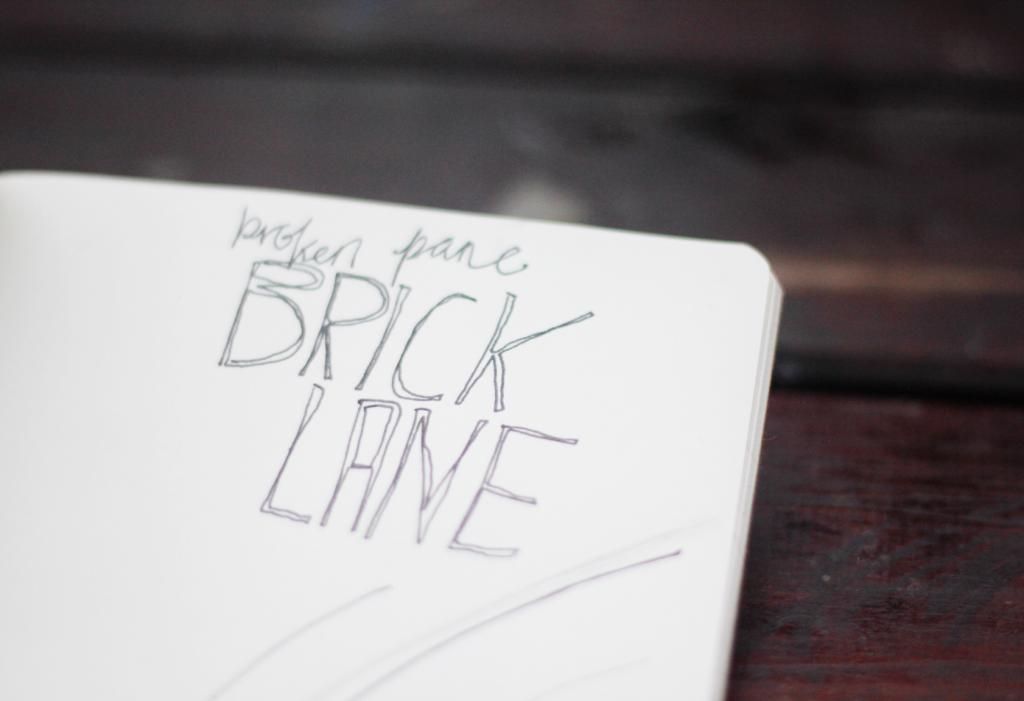 broken pane
BRICK
LANE